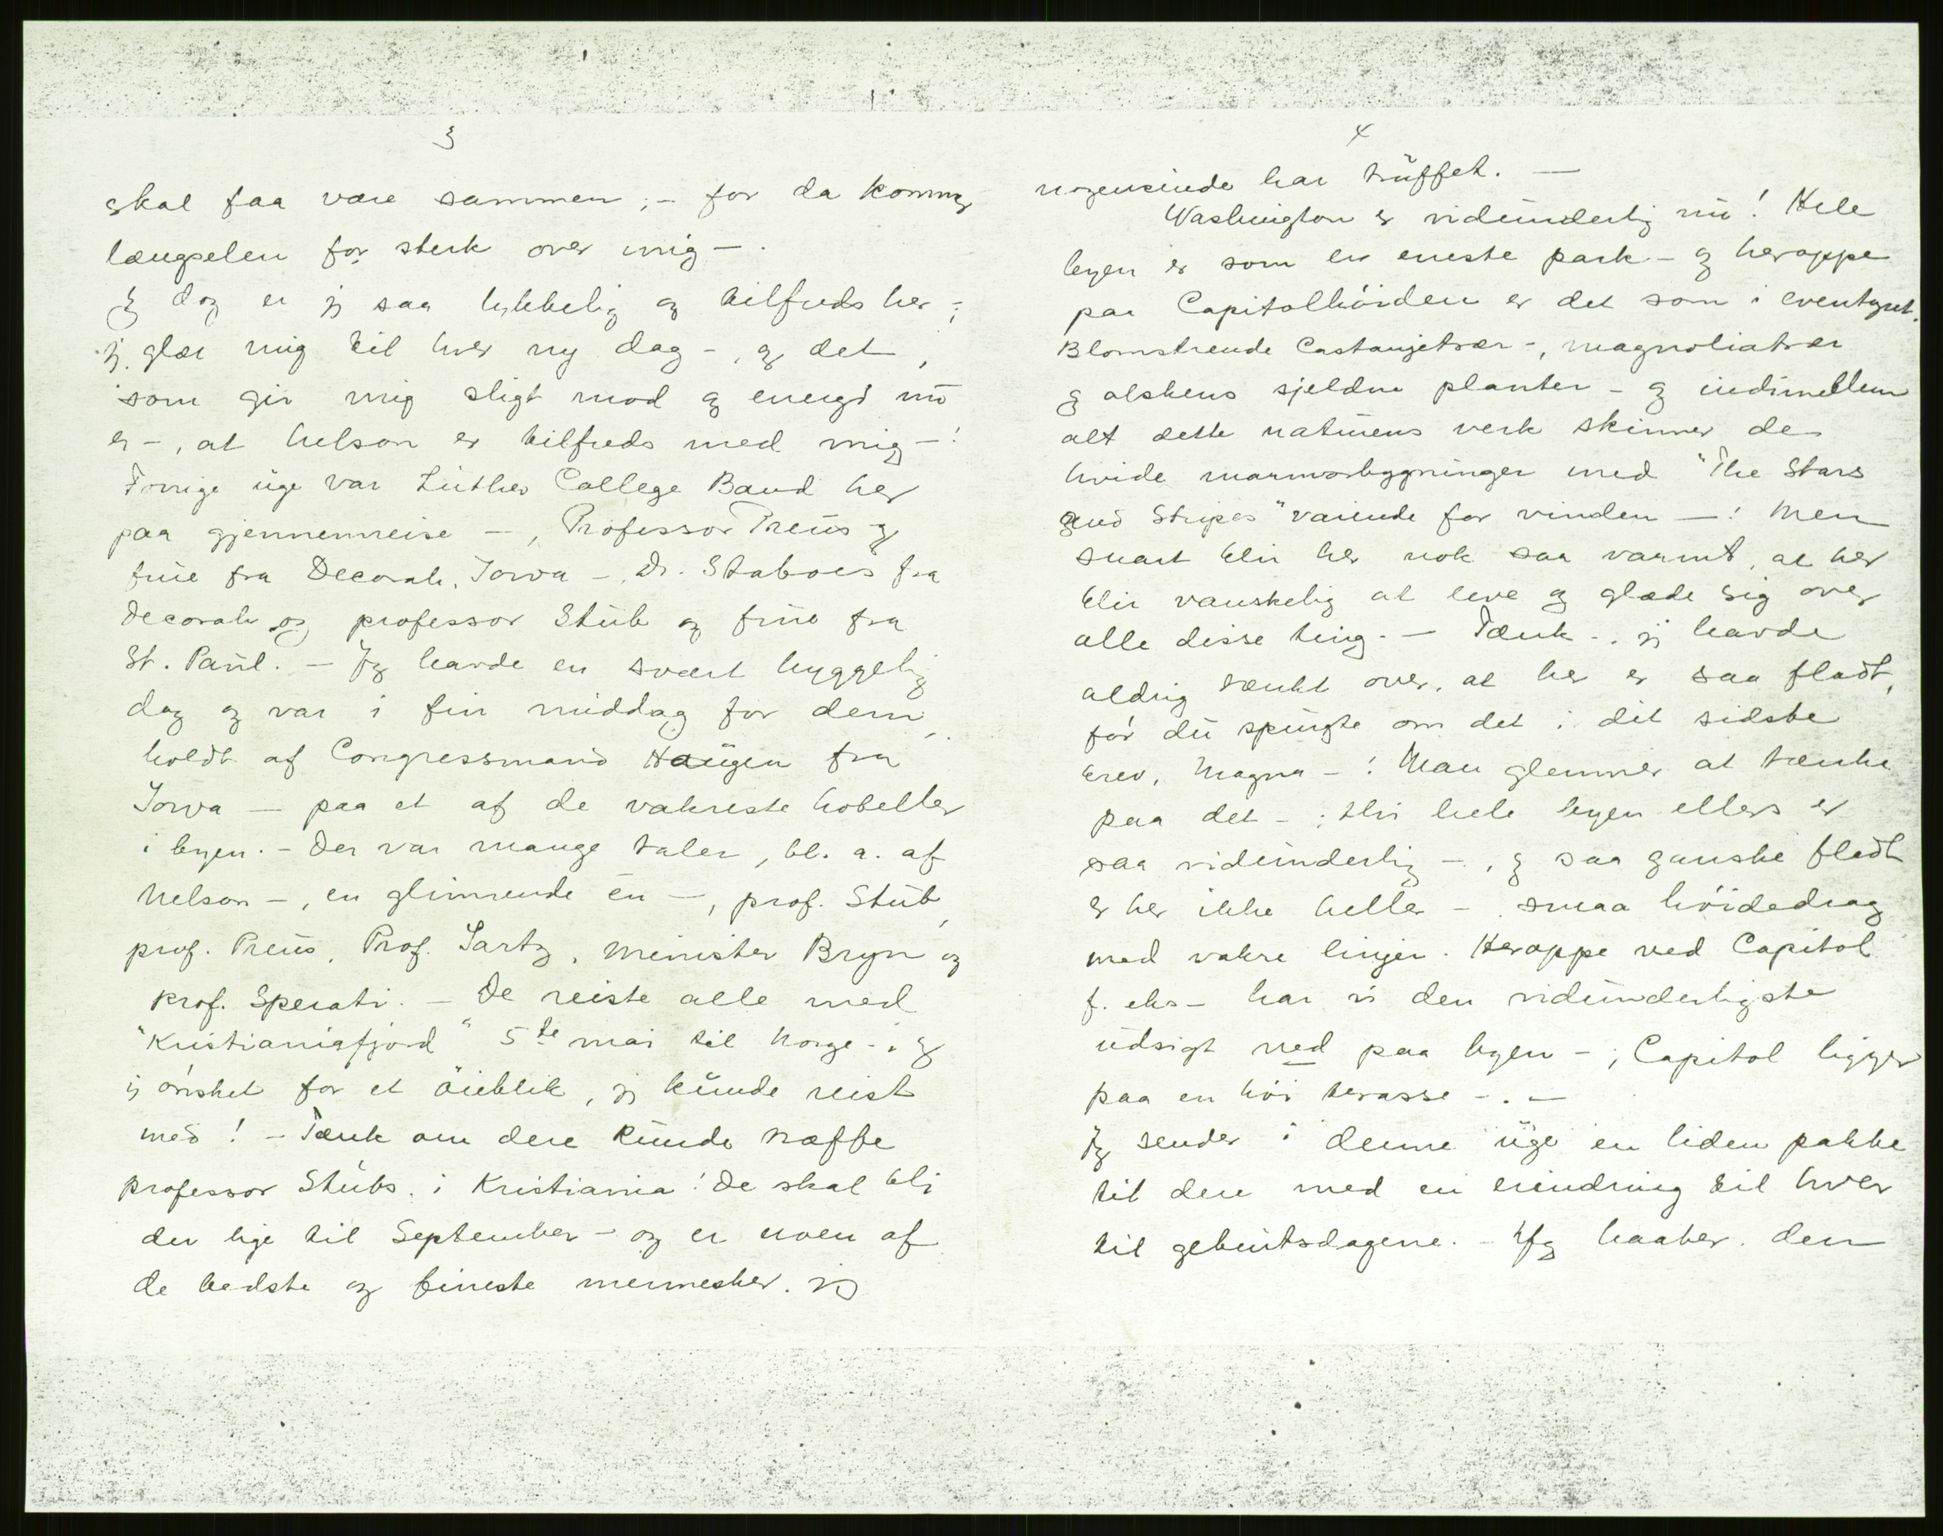 3
skal faa være sammen; - for da kommer
længselen for sterk over mig -.
Og dog er jeg saa lykkelig og tilfreds her -;
jeg glær mig til hver ny dag -, og det,
som gir mig sligt mod og energi nu
er -, at Nelson er tilfreds med mig -!
Forrige uge var Luther College Band her
paa gjennemreise -, Professor Preus og
frue fra Decorah, Iowa -, Dr. Staboes fra
Decorah og professor Stub og frue fra
St. Paul. - Jeg havde en svært hyggelig
dag og var i fin middag for dem,
holdt af Congressmand Haugen fra
Iowa - paa et af de vakreste hoteller
i byen. - Der var mange taler, bl. a. af
Nelson -, en glimrende en -, prof. Stub,
prof. Preus, Prof. Sartz, Minister Bryn og
Prof. Sperati. - De reiste alle med
"Kristianiafjord" 5te mai til Norge -; og
jeg ønsket for et øieblik, jeg kunde reist
med! - Tænk om dere kunde træffe
professor Stubs i Kristiania! De skal bli
der lige til September - og er noen af
de bedste og fineste mennesker, jeg
4
nogensinde har truffet. -
Washington er vidunderlig nu! Hele
byen er som en eneste park - og heroppe
paa Capitolhøiden er det som i eventyret.
Blomstrende Castanjetrær -, magnoliatrær
og alskens sjeldne planter - og indimellem
alt dette naturens verk skinner de
hvide marmorbygninger med "The Stars
and Stripes" vaiende for vinden -! Men
snart blir her nok saa varmt, at her
blir vanskelig at leve og glæde sig over
alle disse ting. - Tænk -, jeg havde
aldrig tænkt over, at her er saa fladt,
før du spurgte om det i dit sidste
brev, Magna -! Man glemmer at tænke
paa det -; thi hele byen ellers er
saa vidunderlig -, og saa ganske fladt
er her ikke heller - smaa høidedrag
med vakre linjer. Heroppe ved Capitol
f. eks - har vi den vidunderligste
udsigt ned paa byen -; Capitol ligger
paa en høi terasse -. -
Jeg sender i denne uge en liden pakke
til dere med en erindring til hver
til geburtsdagene. - Jeg haaber, den